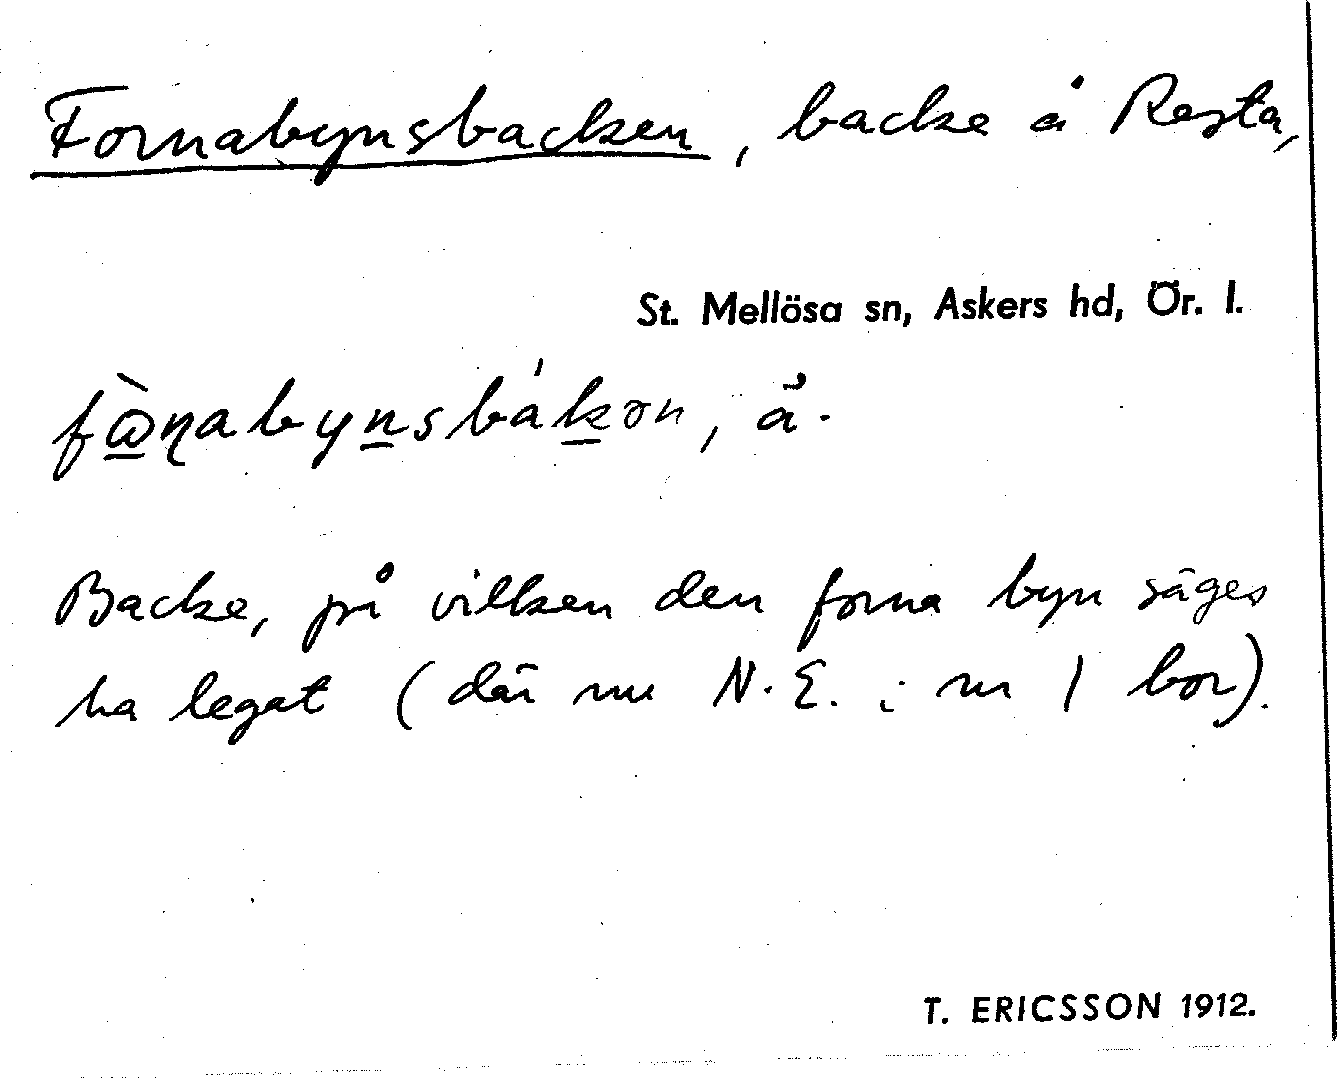 Fornabynsbacken, backe å Resta,
St. Mellösa sn, Askers hd, Ör. l.
å.
Backe, på vilken den forna byn säges
ha legat (där nu N. E. i nr 1 bor).
T. ERICSSON 1912.